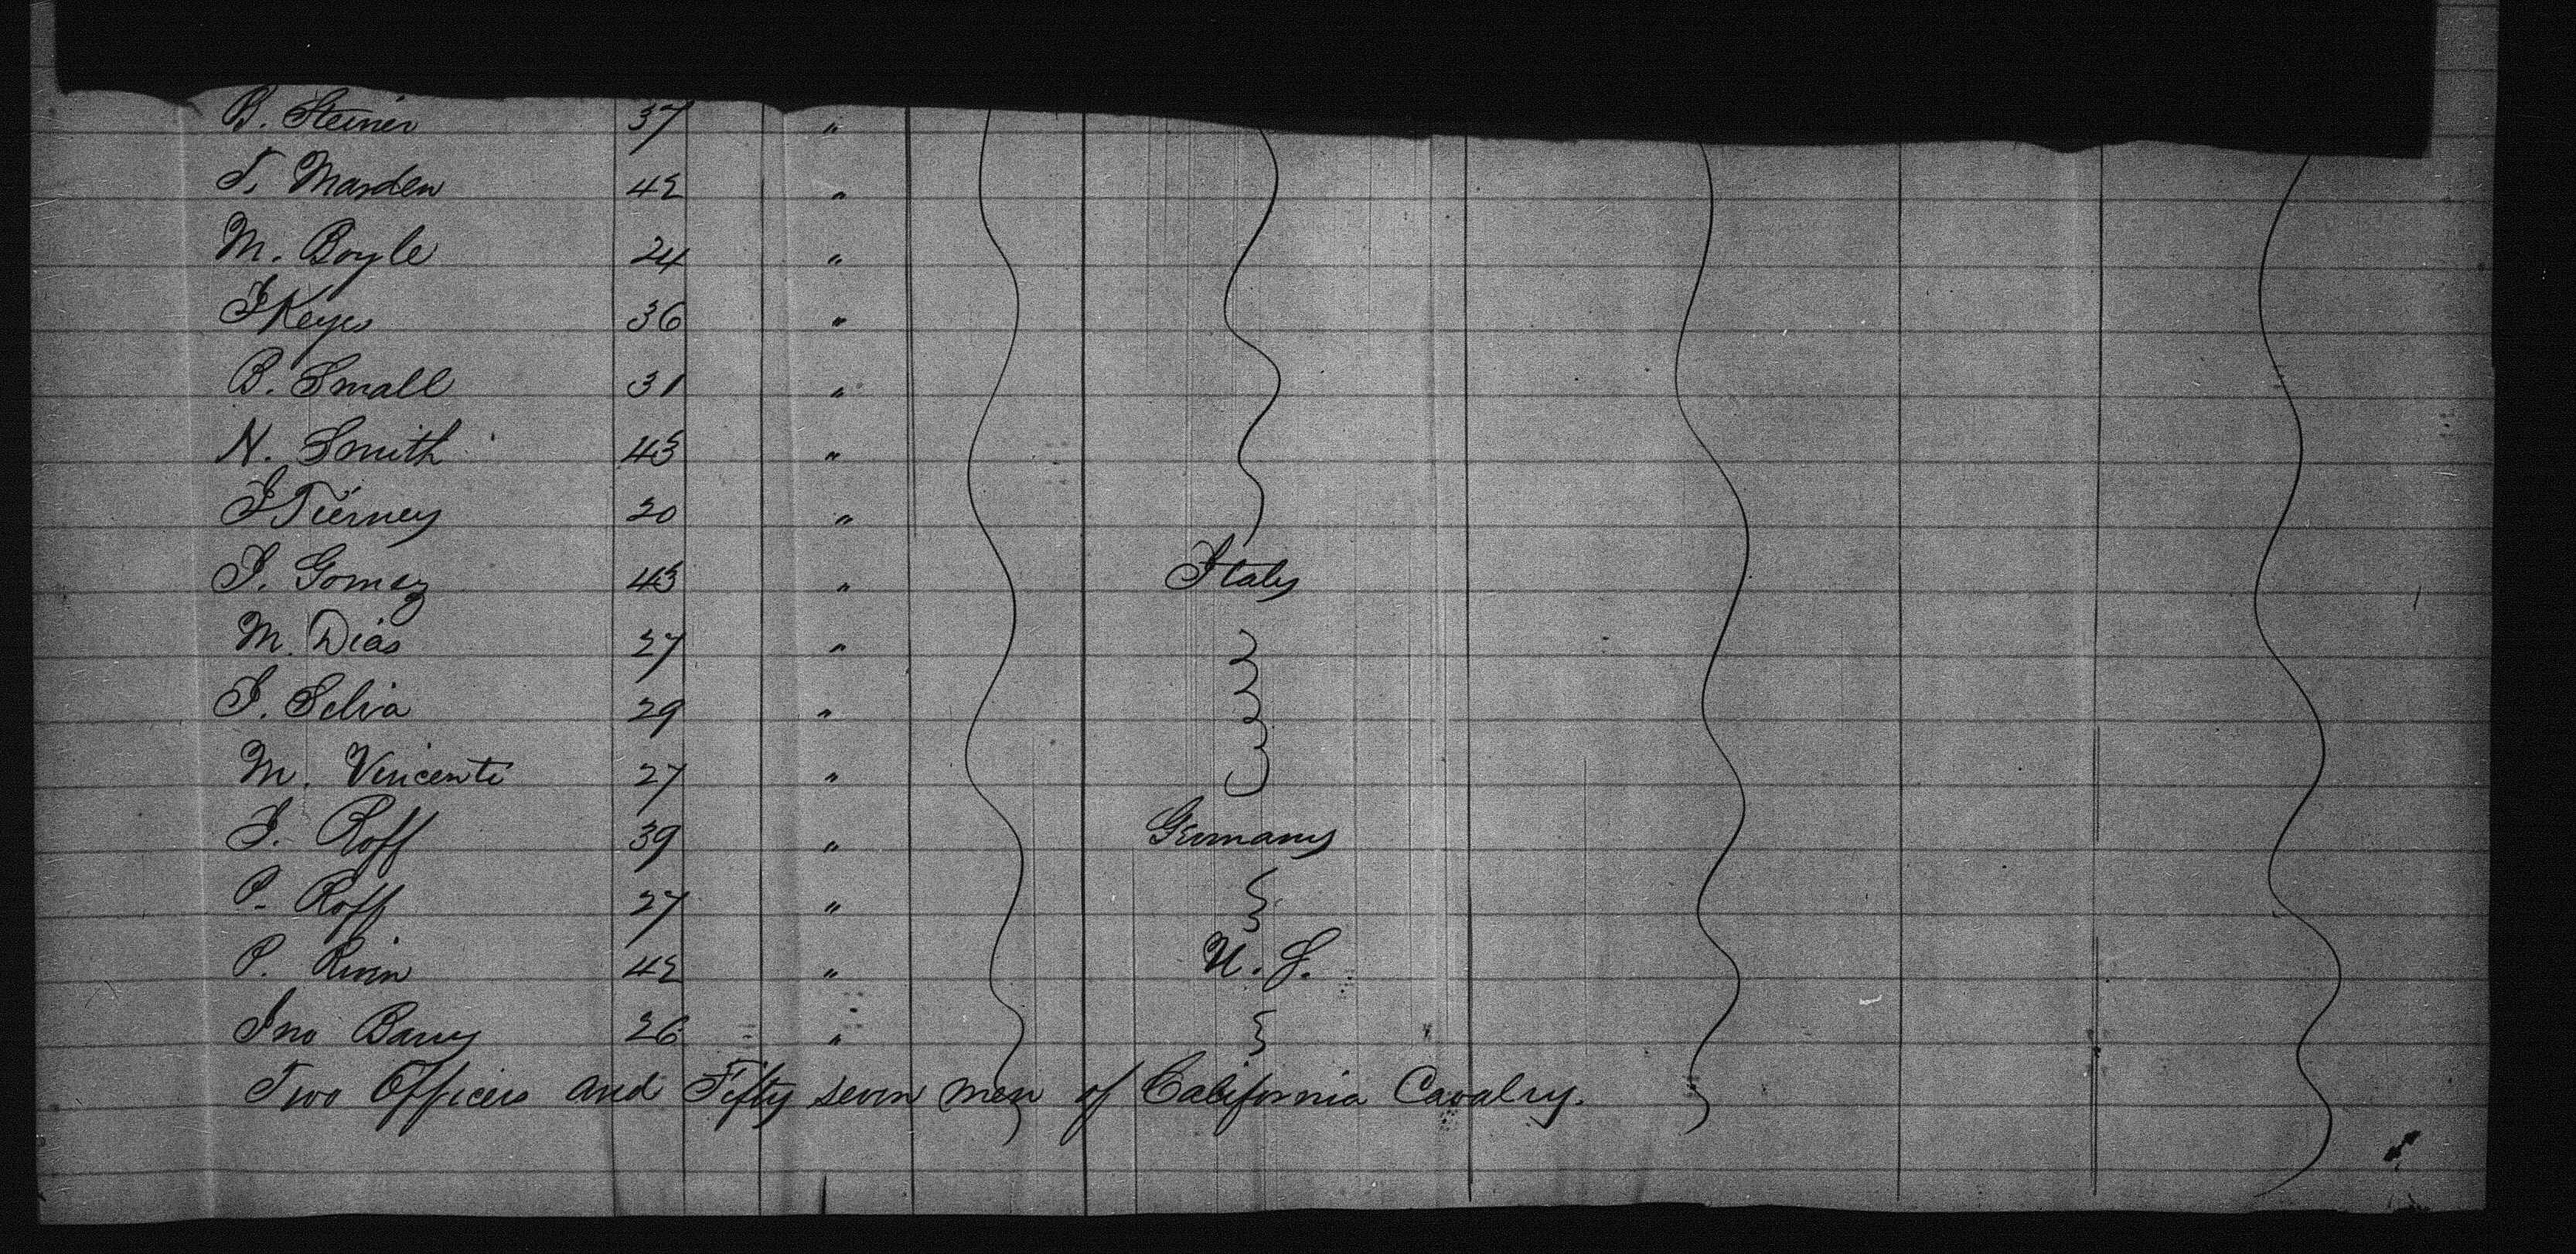 B. Steiner 37 "
T. Marden 42 "
M. Boyle 24 "
J Keyes 36 "
B. Small 31 "
N. Smith 43 "
J Tierney 20 "
J. Gomez 43 " Italy
M. Dias 27 "
J. Selva 29 "
M. Vincenti 27 "
J. Roff 39 " Germany
P. Roff 27 "
P. 42 " U. S.
Jno Barry 26 "
Two Officers and Fifty seven men of California Cavalry.